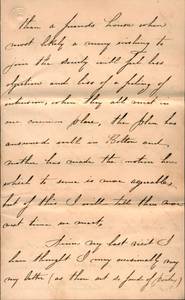 than a friends house when
most likely a many wishing to
join the
will feel less
and less of a feeling of
when they all meet in
one common place, the plan has
answered well in Bolton and
mother has made the motion here
which to some is more agreeable,
but of this I will tell thee more
next time we meet.
Since my last visit I
have thought I may
my letter (as thou art so fond of